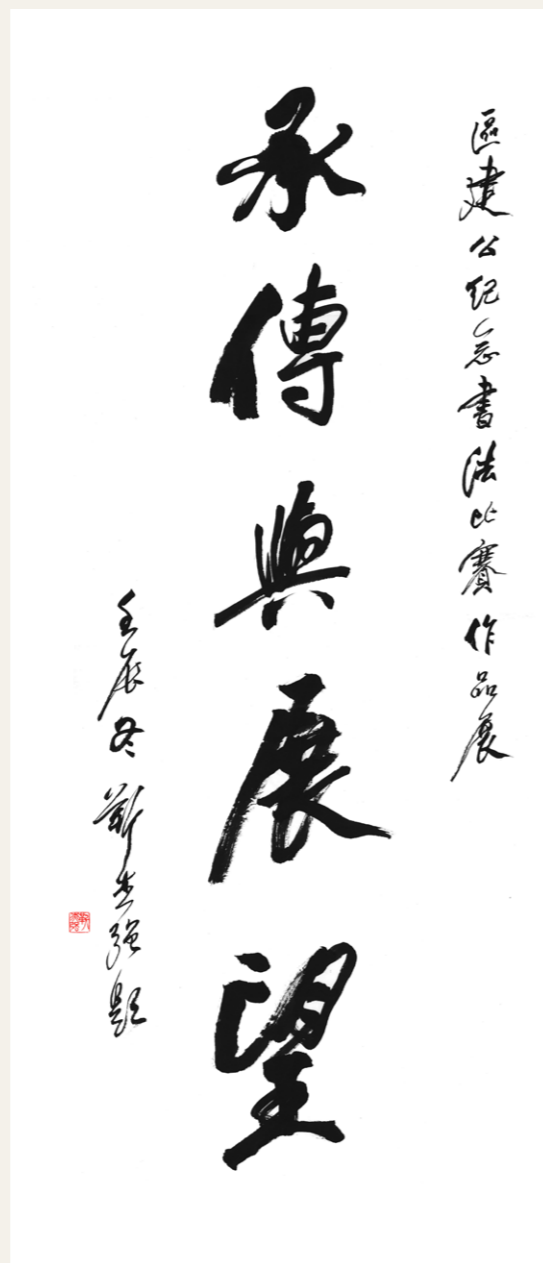 區建公紀念書法比賽作品展
承傳與展望
壬辰冬靳杰強題